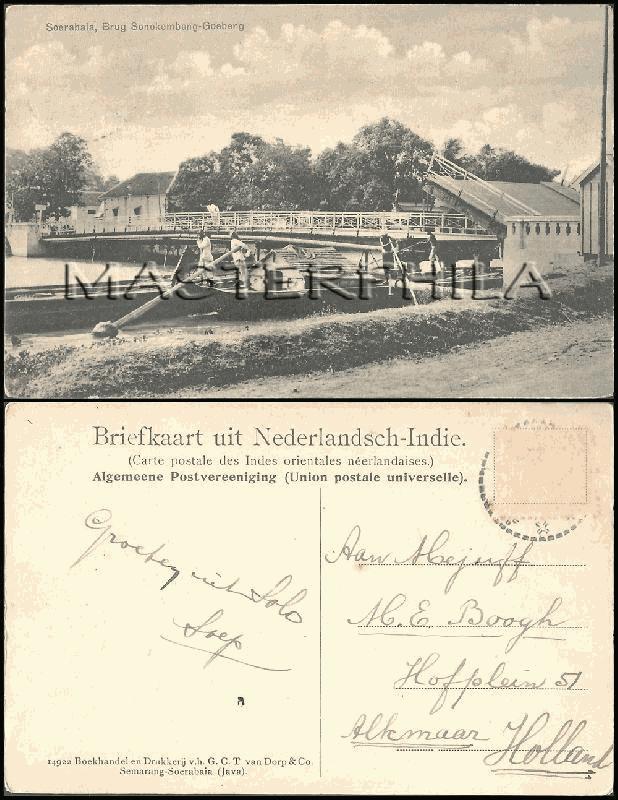 Soerabaia, Brug Sonokembang-Goebeng
MASTERPHILA
Briefkaart uit Nederlandsch-Indie.
(Carte postale des Indes orientales néerlandaises.)
Algemeene Postvereeniging (Union postale universelle).
Groeten uit Solo
Soep
Aan Mejuff
M. E. Boogh
Hofplein 51
Alkmaar Holland
14922 Boekhandel en Drukkerij v.h. G. C. T. van Dorp & Co.
Semarang-Soerabaia (Java).